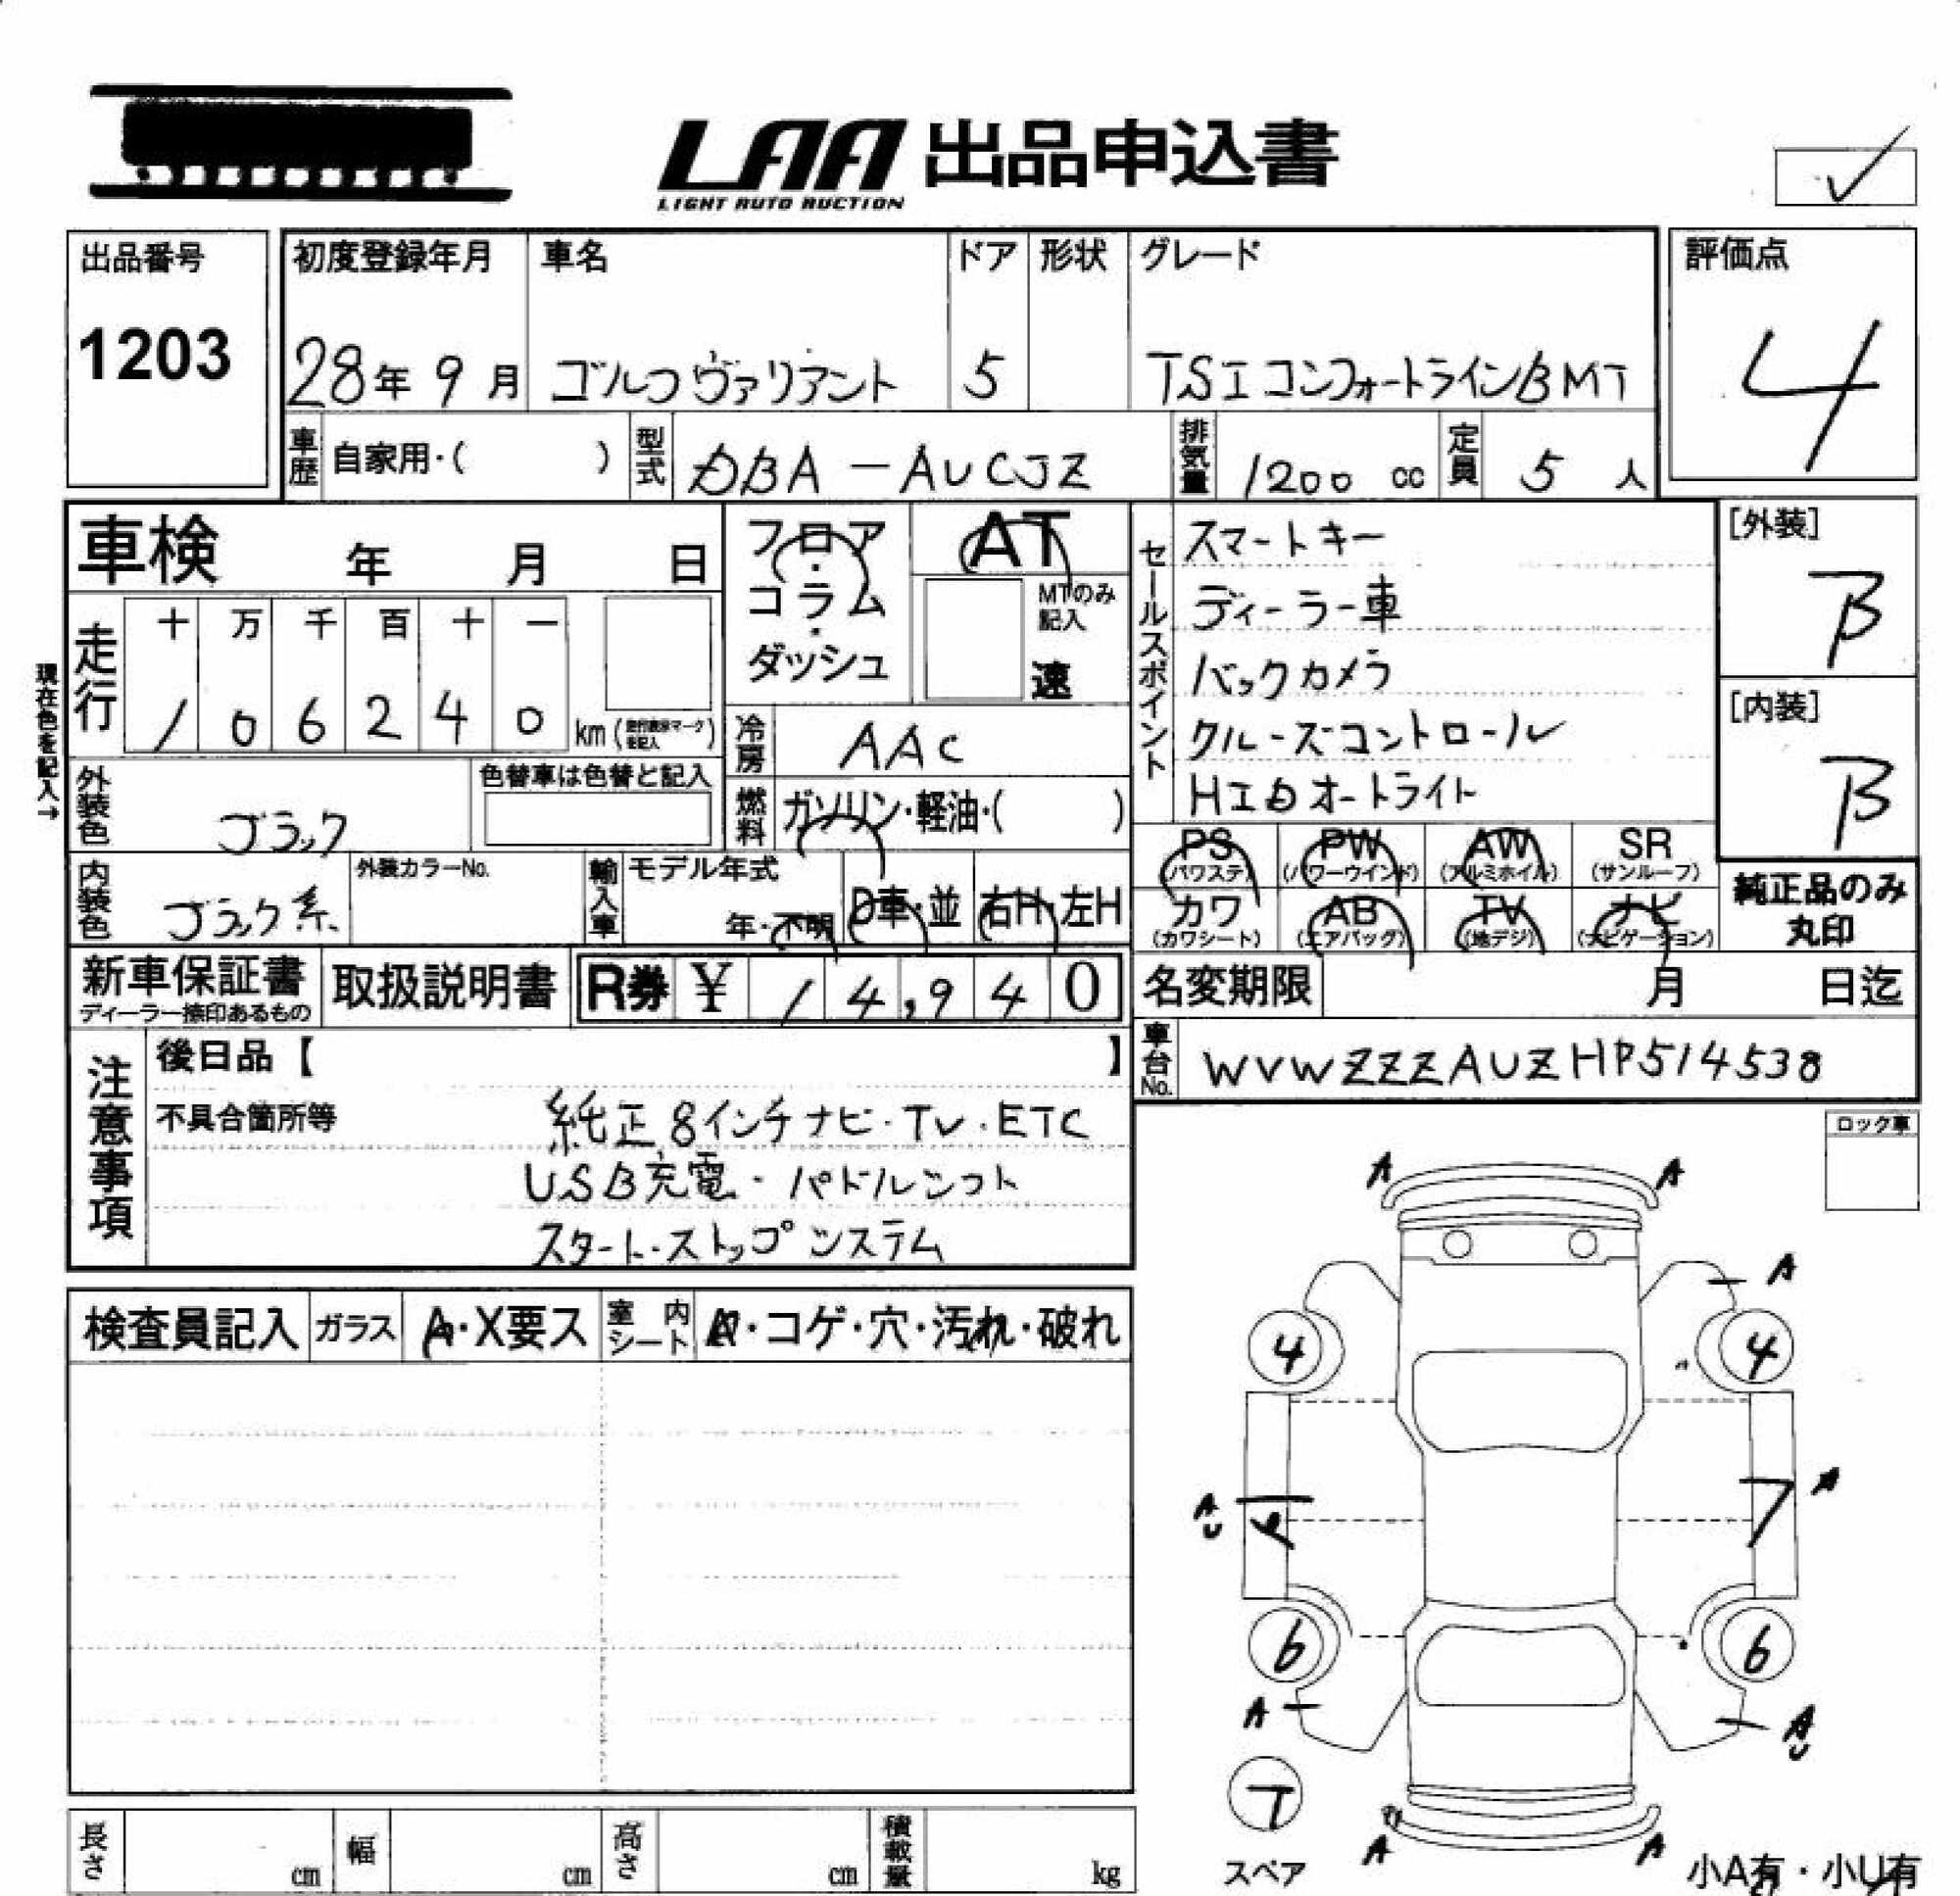 LAA 出品申込書
LIGHT AUTO AUCTION
出品番号
1203
初度登録年月
28年 9月
車名
ゴルフヴァリアント
ドア
5
形状
グレード
TSIコンフォートラインBMT
評価点
4
車歴 自家用・( )
型式 DBA-AUCJZ
排気量 1200 cc
定員 5 人
車検 年 月 日
現在色を記入→
走行
十 万 千 百 十 一
1 0 6 2 4 0 km
外装色 ブラック
色替車は色替と記入
内装色 ブラック系
外装カラーNo.
フロア・コラム・ダッシュ
AT
MTのみ記入
速
冷房 AAC
燃料 ガソリン・軽油・( )
輸入車
モデル年式
年・不明
D車・並
右H・左H
セールスポイント
スマートキー
ディーラー車
バックカメラ
クルーズコントロール
HIDオートライト
[外装]
B
[内装]
B
PS (パワステ)
PW (パワーウインド)
AW (アルミホイル)
SR (サンルーフ)
カワ (カワシート)
AB (エアバッグ)
TV (地デジ)
ナビ (ナビゲーション)
純正品のみ
丸印
新車保証書
ディーラー捺印あるもの
取扱説明書
R券 ¥ 14,940
名変期限 月 日迄
車台No. WVWZZZAUZHP514538
注意事項
後日品【 】
不具合箇所等
純正8インチナビ・TV・ETC
USB充電・パドルシフト
スタート・ストップシステム
ロック車
検査員記入
ガラス A・X要ス
室内シート
・コゲ・穴・汚れ・破れ
A A
A
4 4
A
U
A
6 6
A
A
U
スペア
A A
小A有・小U有
長さ cm
幅 cm
高さ cm
積載量 kg